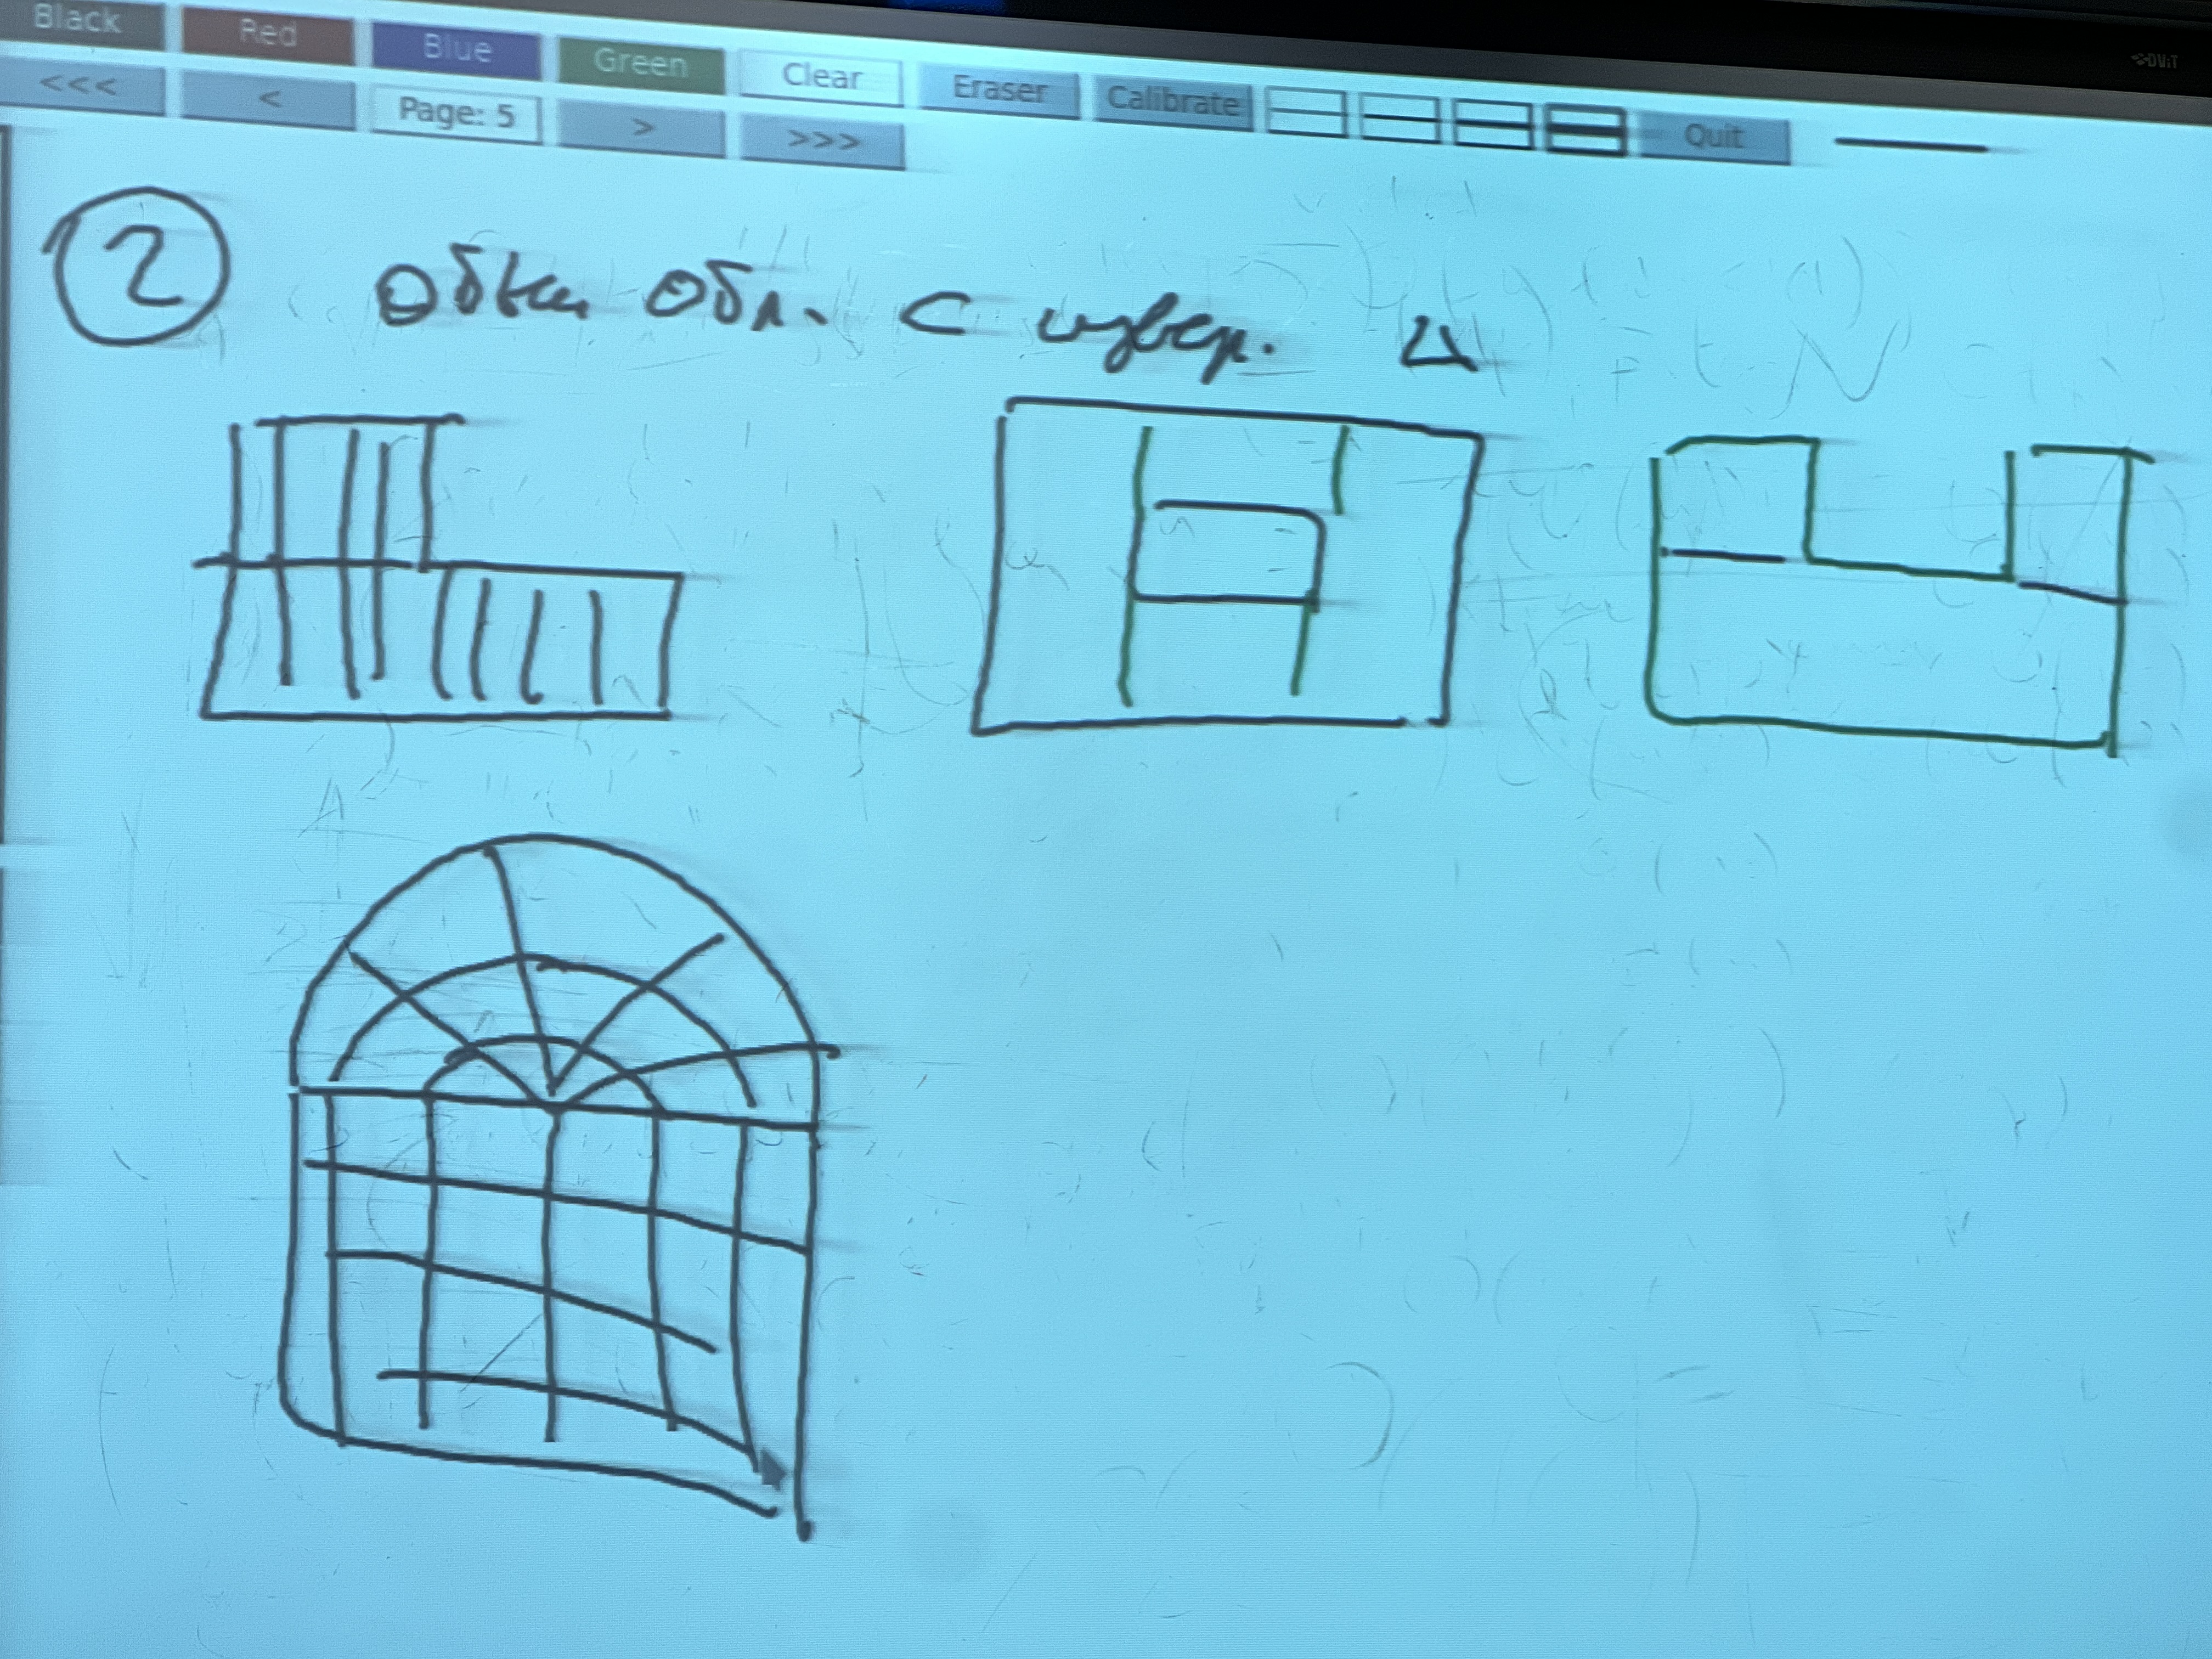 Black Red Blue Green Clear Eraser Calibrate Quit
<<< < Page: 5 > >>>
DViT
② обл. с